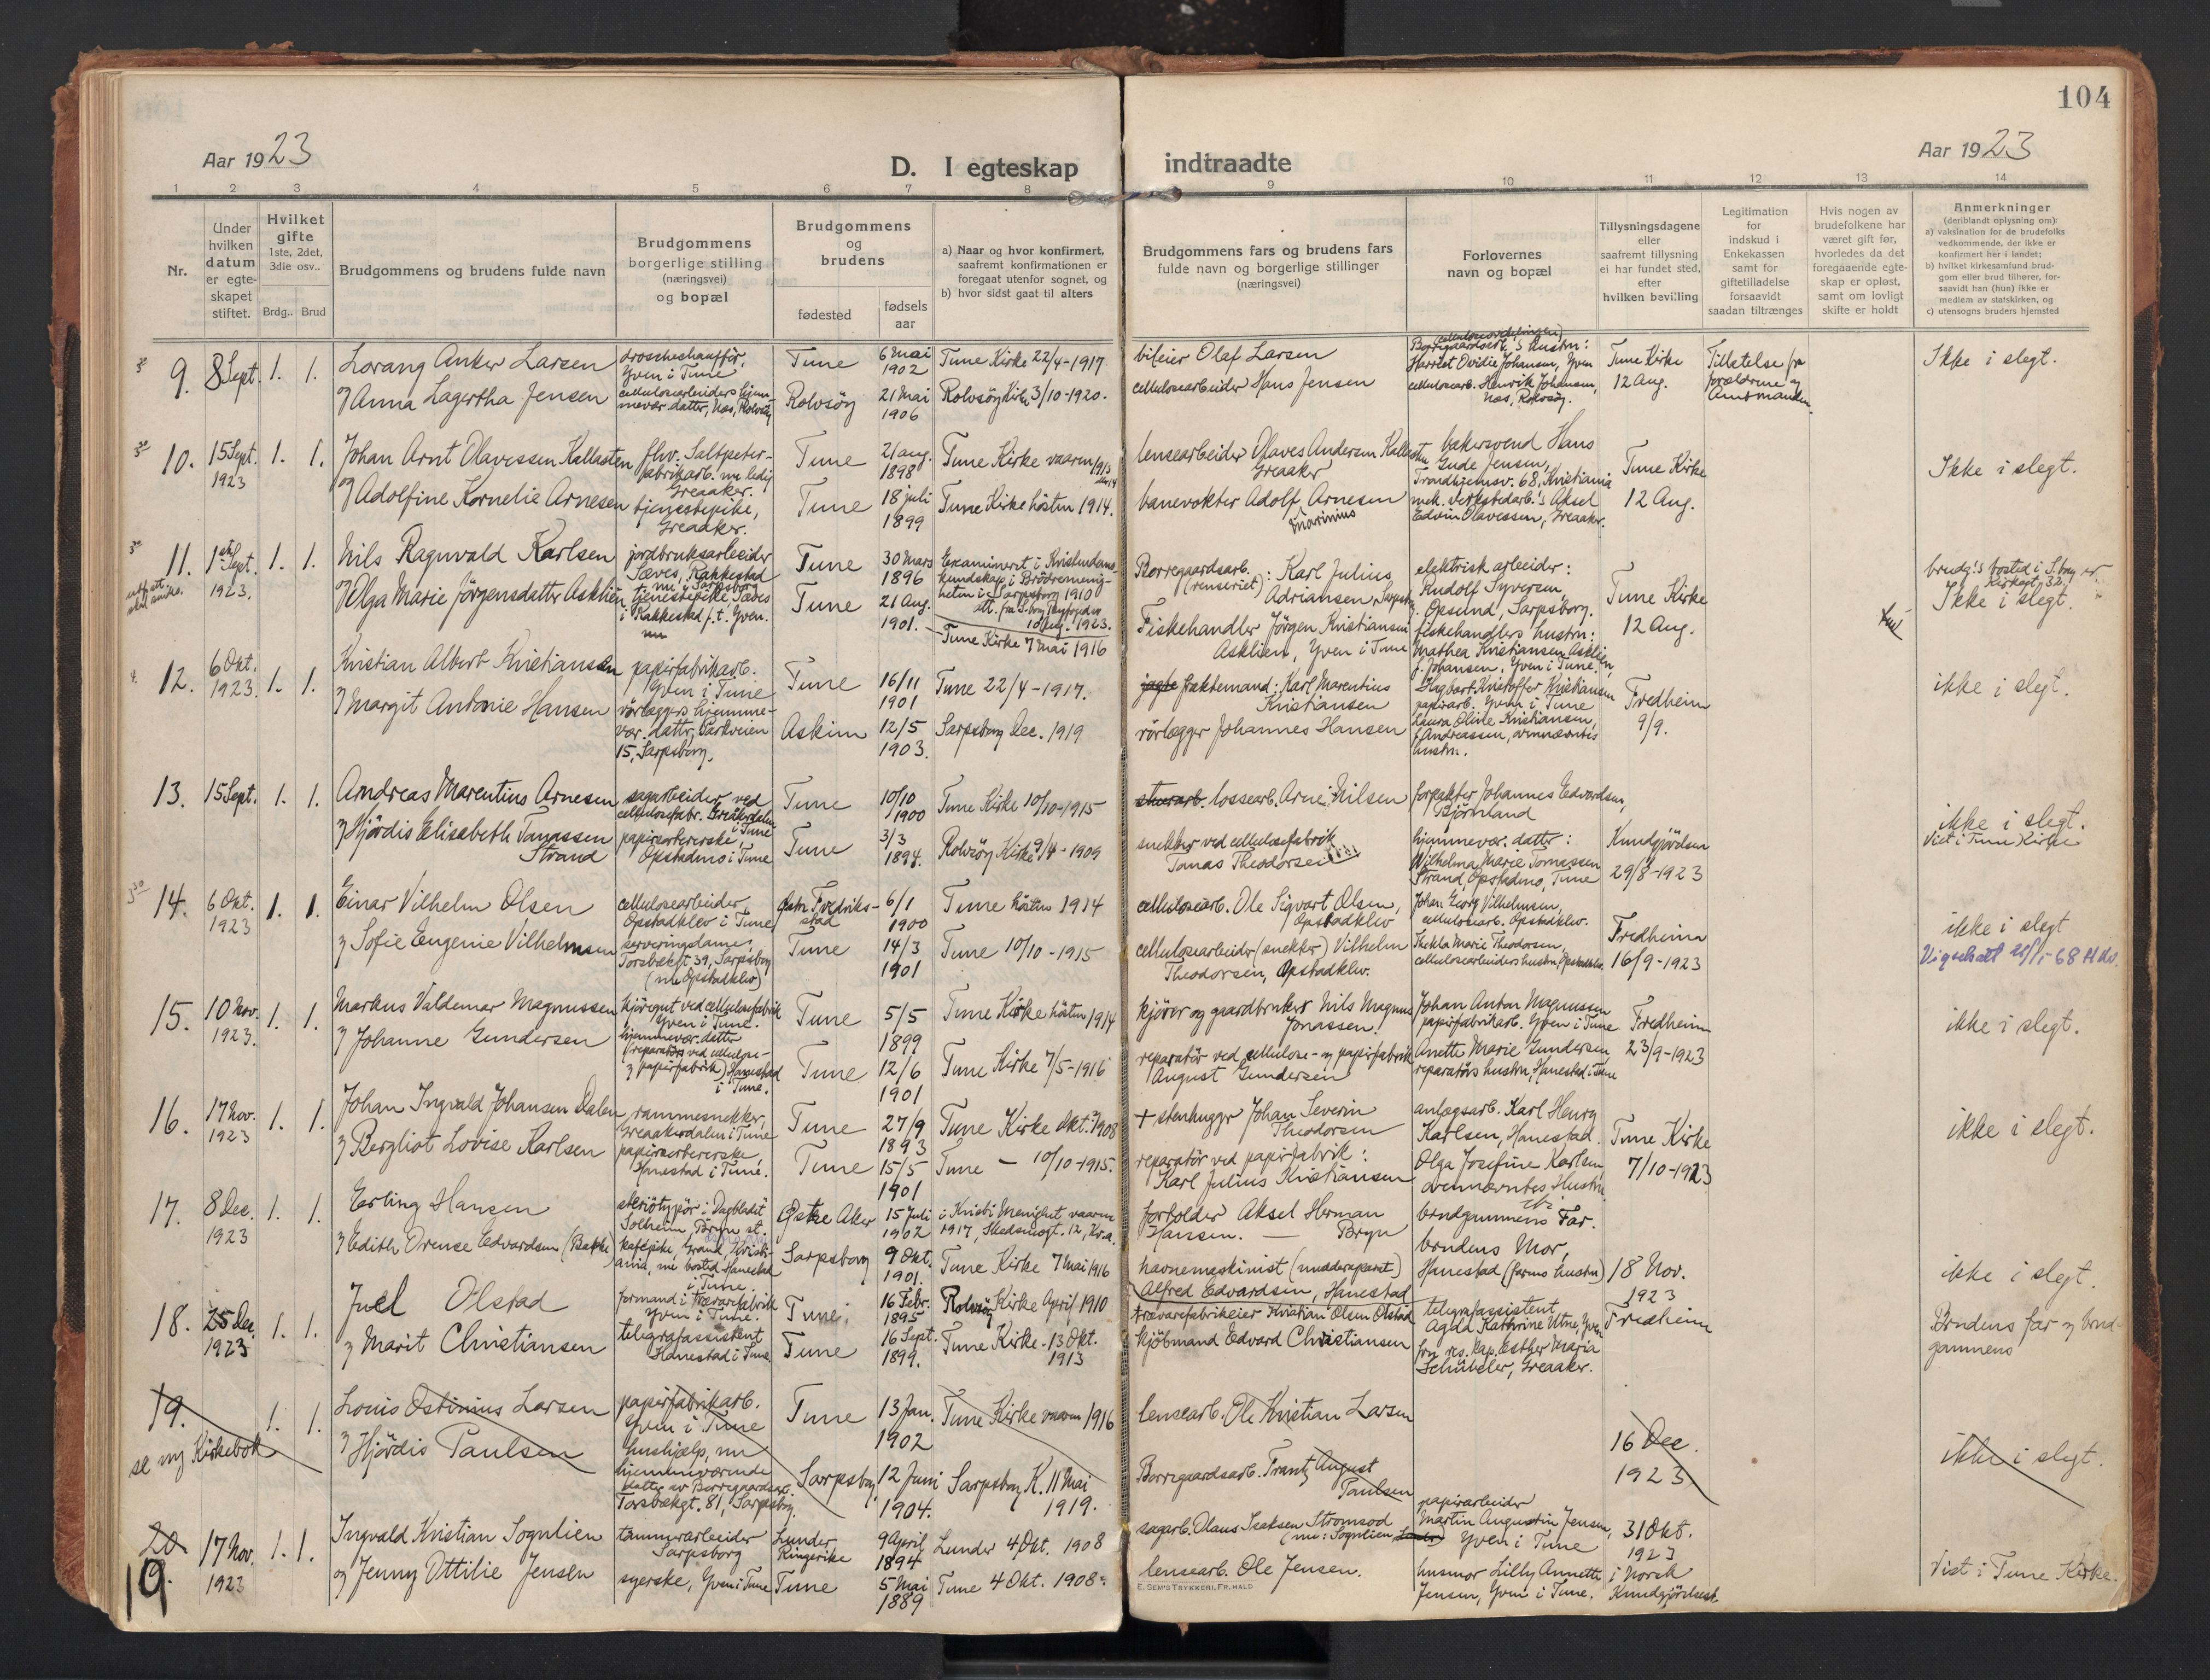 104
Aar 1923
D. I egteskap
indtraadte
Aar 1923
1 2 3 4 5 6 7 8 9 10 11 12 13 14
Nr.
Under hvilken datum er egte-skapet stiftet.
Hvilket gifte
1ste, 2det, 3die osv..
Brdg.. Brud
Brudgommens og brudens fulde navn
Brudgommens borgerlige stilling (næringsvei) og bopæl
Brudgommens og brudens
fødested
fødsels aar
a) Naar og hvor konfirmert, saafremt konfirmationen er foregaat utenfor sognet, og
b) hvor sidst gaat til alters
Brudgommens fars og brudens fars
fulde navn og borgerlige stillinger
(næringsvei)
Forlovernes
navn og bopæl
Tillysningsdagene
eller
saafremt tillysning
ei har fundet sted,
efter
hvilken bevilling
Legitimation
for
indskud i
Enkekassen
samt for
giftetilladelse
forsaavidt
saadan tiltrænges
Hvis nogen av
brudefolkene har
været gift før,
hvorledes da det
foregaaende egte-
skap er opløst,
samt om lovligt
skifte er holdt
Anmerkninger
(deriblandt oplysning om):
a) vaksination for de brudefolks
vedkommende, der ikke er
konfirmert her i landet;
b) hvilket kirkesamfund brud-
gom eller brud tilhører, for-
saavidt han (hun) ikke er
medlem av statskirken, og
c) utensogns bruders hjemsted
9. 8 Sept. 1. 1. Lorang Anker Larsen
Yven i Tune
Tune 6 mai 1902 Tune Kirke 22/4-1917
bileier Olaf Larsen
Harriet Ovidie Johansen, Yven
Tune Kirke 12 Aug.
Tillatelse fra forældrene og Amtmanden.
Ikke i slegt.
og Anna Lagertha Jensen
cellulosearbeiders hjem-
mevær. datter, Næs, Rolvsøy
Rolvsöy 21 Mai 1906 Rolvsöy Kirke 3/10-1920.
cellulosearbeider Hans Jensen
cellulosearb. Henrik Johansen,
Næs, Rolvsöy.
10. 15 Sept. 1923 1. 1. Johan Arnt Olavessen Kallasten
fhv. Saltpeter-
fabrikarb. nu ledig
Greaaker.
Tune 21 aug. 1898 Tune Kirke vaaren 1913
lensearbeider Olaves Andersen Kallasten
Greaaker
bakersvend Hans
Gude Jensen,
Trondhjemsv. 68, Kristiania
Tune Kirke
12 Aug.
Ikke i slegt.
og Adolfine Kornelie Arnesen
tjenestepike,
Greaaker.
Tune 18 juli 1899 Tune Kirke hösten 1914.
banevokter Adolf Marinius Arnesen
mek. verkstedarb.'s Aksel
Edvin Olavessen, Greaaker.
11. 1ste Sept. 1923. 1. 1. Nils Ragnvald Karlsen
jordbruksarbeider
Sæves, Rakkestad
nu i Sarpsborg
Tune 30 Mars 1896
Examineret i Kristendoms-
kundskap i Brödremenig-
heten i Sarpsborg 1910
Borregaardsarb.
(renseriet): Karl Julius
Adriansen, Sarpsborg.
elektrisk arbeider:
Rudolf Syversen,
Opsund, Sarpsborg.
Tune Kirke
12 Aug.
brudg.'s bosted i S.borg er
Kirkegt. 32.
Ikke i slegt.
og Olga Marie Jörgensdatter Asklien
tjenestepike Sæves
i Rakkestad f.t. Yven.
Tune 21 Aug. 1901.
Tune Kirke 7 Mai 1916
Fiskehandler Jörgen Kristiansen
Asklien, Yven i Tune
fiskehandlers hustru:
Mathea Kristiansen Asklien,
f. Johansen, Yven i Tune
12. 6 Okt. 1923. 1. 1. Kristian Albert Kristiansen
papirfabrikarb.
Yven i Tune
Tune 16/11 1901 Tune 22/4-1917.
jagte fraktemand: Karl Marentius
Kristiansen
Dagbart Kristoffer Kristiansen
papirarb. Yven i Tune
Fredheim
9/9.
ikke i slegt.
og Margit Antonie Hansen
rörlæggers hjemme-
vær. datter, Parkveien
15, Sarpsborg.
Askim 12/5 1903. Sarpsborg Dec. 1919
rörlægger Johannes Hansen
Laura Olivie Kristiansen,
f. Andreassen, ovennævntes
hustru.
13. 15 Sept. 1. 1. Andreas Marentius Arnesen
sagarbeider ved
cellulosefabr. Greakerdalen
i Tune
Tune 10/10 1900 Tune Kirke 10/10-1915
lossearb. Arne Nilsen
forpakter Johannes Edvardsen,
Björnland
ikke i slegt.
Viet i Tune Kirke
og Hjördis Elisabeth Tomassen
Strand
papirsortererske,
Opstadmo i Tune
Tune 3/3 1894. Rolvsöy Kirke 9/4-1909
snekker ved cellulosefabrik
Tomas Theodorsen
hjemmevær. datter:
Wilhelma Marie Tomassen
Strand, Opstadmo, Tune
Kundgjördsen
29/8-1923
14. 6 Okt. 1923 1. 1. Einar Vilhelm Olsen
cellulosearbeider,
Opstadklev i Tune
Fredriks-
stad
6/1 1900 Tune hösten 1914
cellulosearb. Ole Sigvart Olsen,
Opstadklev
Johan Georg Vilhelmsen,
cellulosearb. Opstadklev.
Fredheim
16/9-1923
ikke i slegt
og Sofie Eugenie Vilhelmsen
serveringsdame,
Torsbækgt 39, Sarpsborg
(nu Opstadklev)
Tune 14/3 1901 Tune 10/10-1915
cellulosearbeider (snekker) Vilhelm
Theodorsen, Opstadklev.
Thekla Marie Theodorsen,
cellulosearbeiders hustru, Opstadklev.
15. 10 Nov. 1923. 1. 1. Markus Valdemar Magnussen
kjöregut ved cellulosefabrik
Yven i Tune.
Tune 5/5 1899 Tune Kirke hösten 1914
kjörer og gaardbruker Nils Magnus
Jonassen.
Johan Anton Magnussen
papirfabrikarb. Yven i Tune
Fredheim
23/9-1923
ikke i slegt.
og Johanne Gundersen
hjemmevær. datter
(reparatör ved cellulose-
og papirfabrik) Hanestad
i Tune.
Tune 12/6 1901 Tune Kirke 7/5-1916
reparatör ved cellulose- og papirfabrik
August Gundersen
Anette Marie Gundersen
reparatörs hustru, Hanestad i Tune
16. 17 Nov. 1923 1. 1. Johan Ingvald Johansen Dalen
rammesnekker,
Greaakerdalen i Tune
Tune 27/9 1893 Tune Kirke Okt. 1908
+ stenhugger Johan Severin
Theodorsen
anlægsarb. Karl Henry
Karlsen, Hanestad.
Tune Kirke
7/10-1923
ikke i slegt.
og Bergliot Lovise Karlsen
papirsortererske,
Hanestad i Tune.
Tune 15/5 1901 Tune — 10/10-1915.
reparatör ved papirfabrik:
Karl Julius Kristiansen
Olga Josefine Karlsen,
ovennævntes Hustru
17. 8 Dec. 1923 1. 1. Erling Hansen
steriötypör i Dagbladet
Solheim, Bryn st.
Østre Aker 15 Juli 1902
i Kristi Menighet vaaren
1917
forfolder Aksel Herman
Hansen. — Bryn
brudgommens Far.
og Edith Orense Edvardsen (Bakke)
kafépike, Grand, Kristi-
ania, nu bosted Hanestad
i Tune.
Sarpsborg 9 Okt. 1901. Tune Kirke 7 Mai 1916
havnemaskinist (mudderapparat)
Alfred Edvardsen, Hanestad
brudens Mor,
Hanestad (forms hustru)
18 Nov.
1923
ikke i slegt.
18. 25 Dec. 1923 1. 1. Juel Olstad
formand i trævarefabrik
Yven i Tune.
Tune 16 Febr. 1895 Rolvsöy Kirke April 1910
trævarefabrikeier Kristian Olsen Olstad
telegrafassistent
Agda Kathrine Utne, Yven
Fredheim
Brudens far og brud-
gommens
og Marit Christiansen
telegrafassistent
Hanestad i Tune.
Tune 16 Sept. 1899. Tune Kirke. 13 Okt. 1913
kjöbmand Edvard Christiansen
fru res. kap. Esther Maria
Schübeler, Greaaker.
19. 1. 1. Louis Ostinius Larsen
se ny Kirkebok
papirfabrikarb.
Yven i Tune
Tune 13 Jan. 1902 Tune Kirke vaaren 1916
lensearb. Ole Kristian Larsen
16 Dec.
1923
ikke i slegt.
og Hjördis Paulsen
hushjælp, nu
hjemmeværende
datter av Borregaardsarb.
Torsbækgt. 81, Sarpsborg.
Sarpsborg 12 Juni 1904. Sarpsborg K. 11 Mai 1919.
Borregaardsarb. Frantz August
Paulsen
20. 19. 17 Nov. 1923 1. 1. Ingvald Kristian Sognlien
tømmerarbeider
Sarpsborg
Lunder
Ringerike
9 April 1894 Lunder 4 Okt. 1908
sagarb. Olaus Isaksen Stromsod
(nu: Sognlien Lunder)
papirarbeider
Martin Augustin Jensen,
Yven i Tune
31 Okt.
1923
i Norsk
Kundgjörelsest.
Viet i Tune Kirke.
og Jenny Ottilie Jensen
syerske, Yven i Tune
Tune 5 Mai 1889 Tune 4 Okt. 1908.
lensearb. Ole Jensen.
husmor Lilly Annette
Jensen, Yven i Tune.
E. SEM'S TRYKKERI, FR.HALD